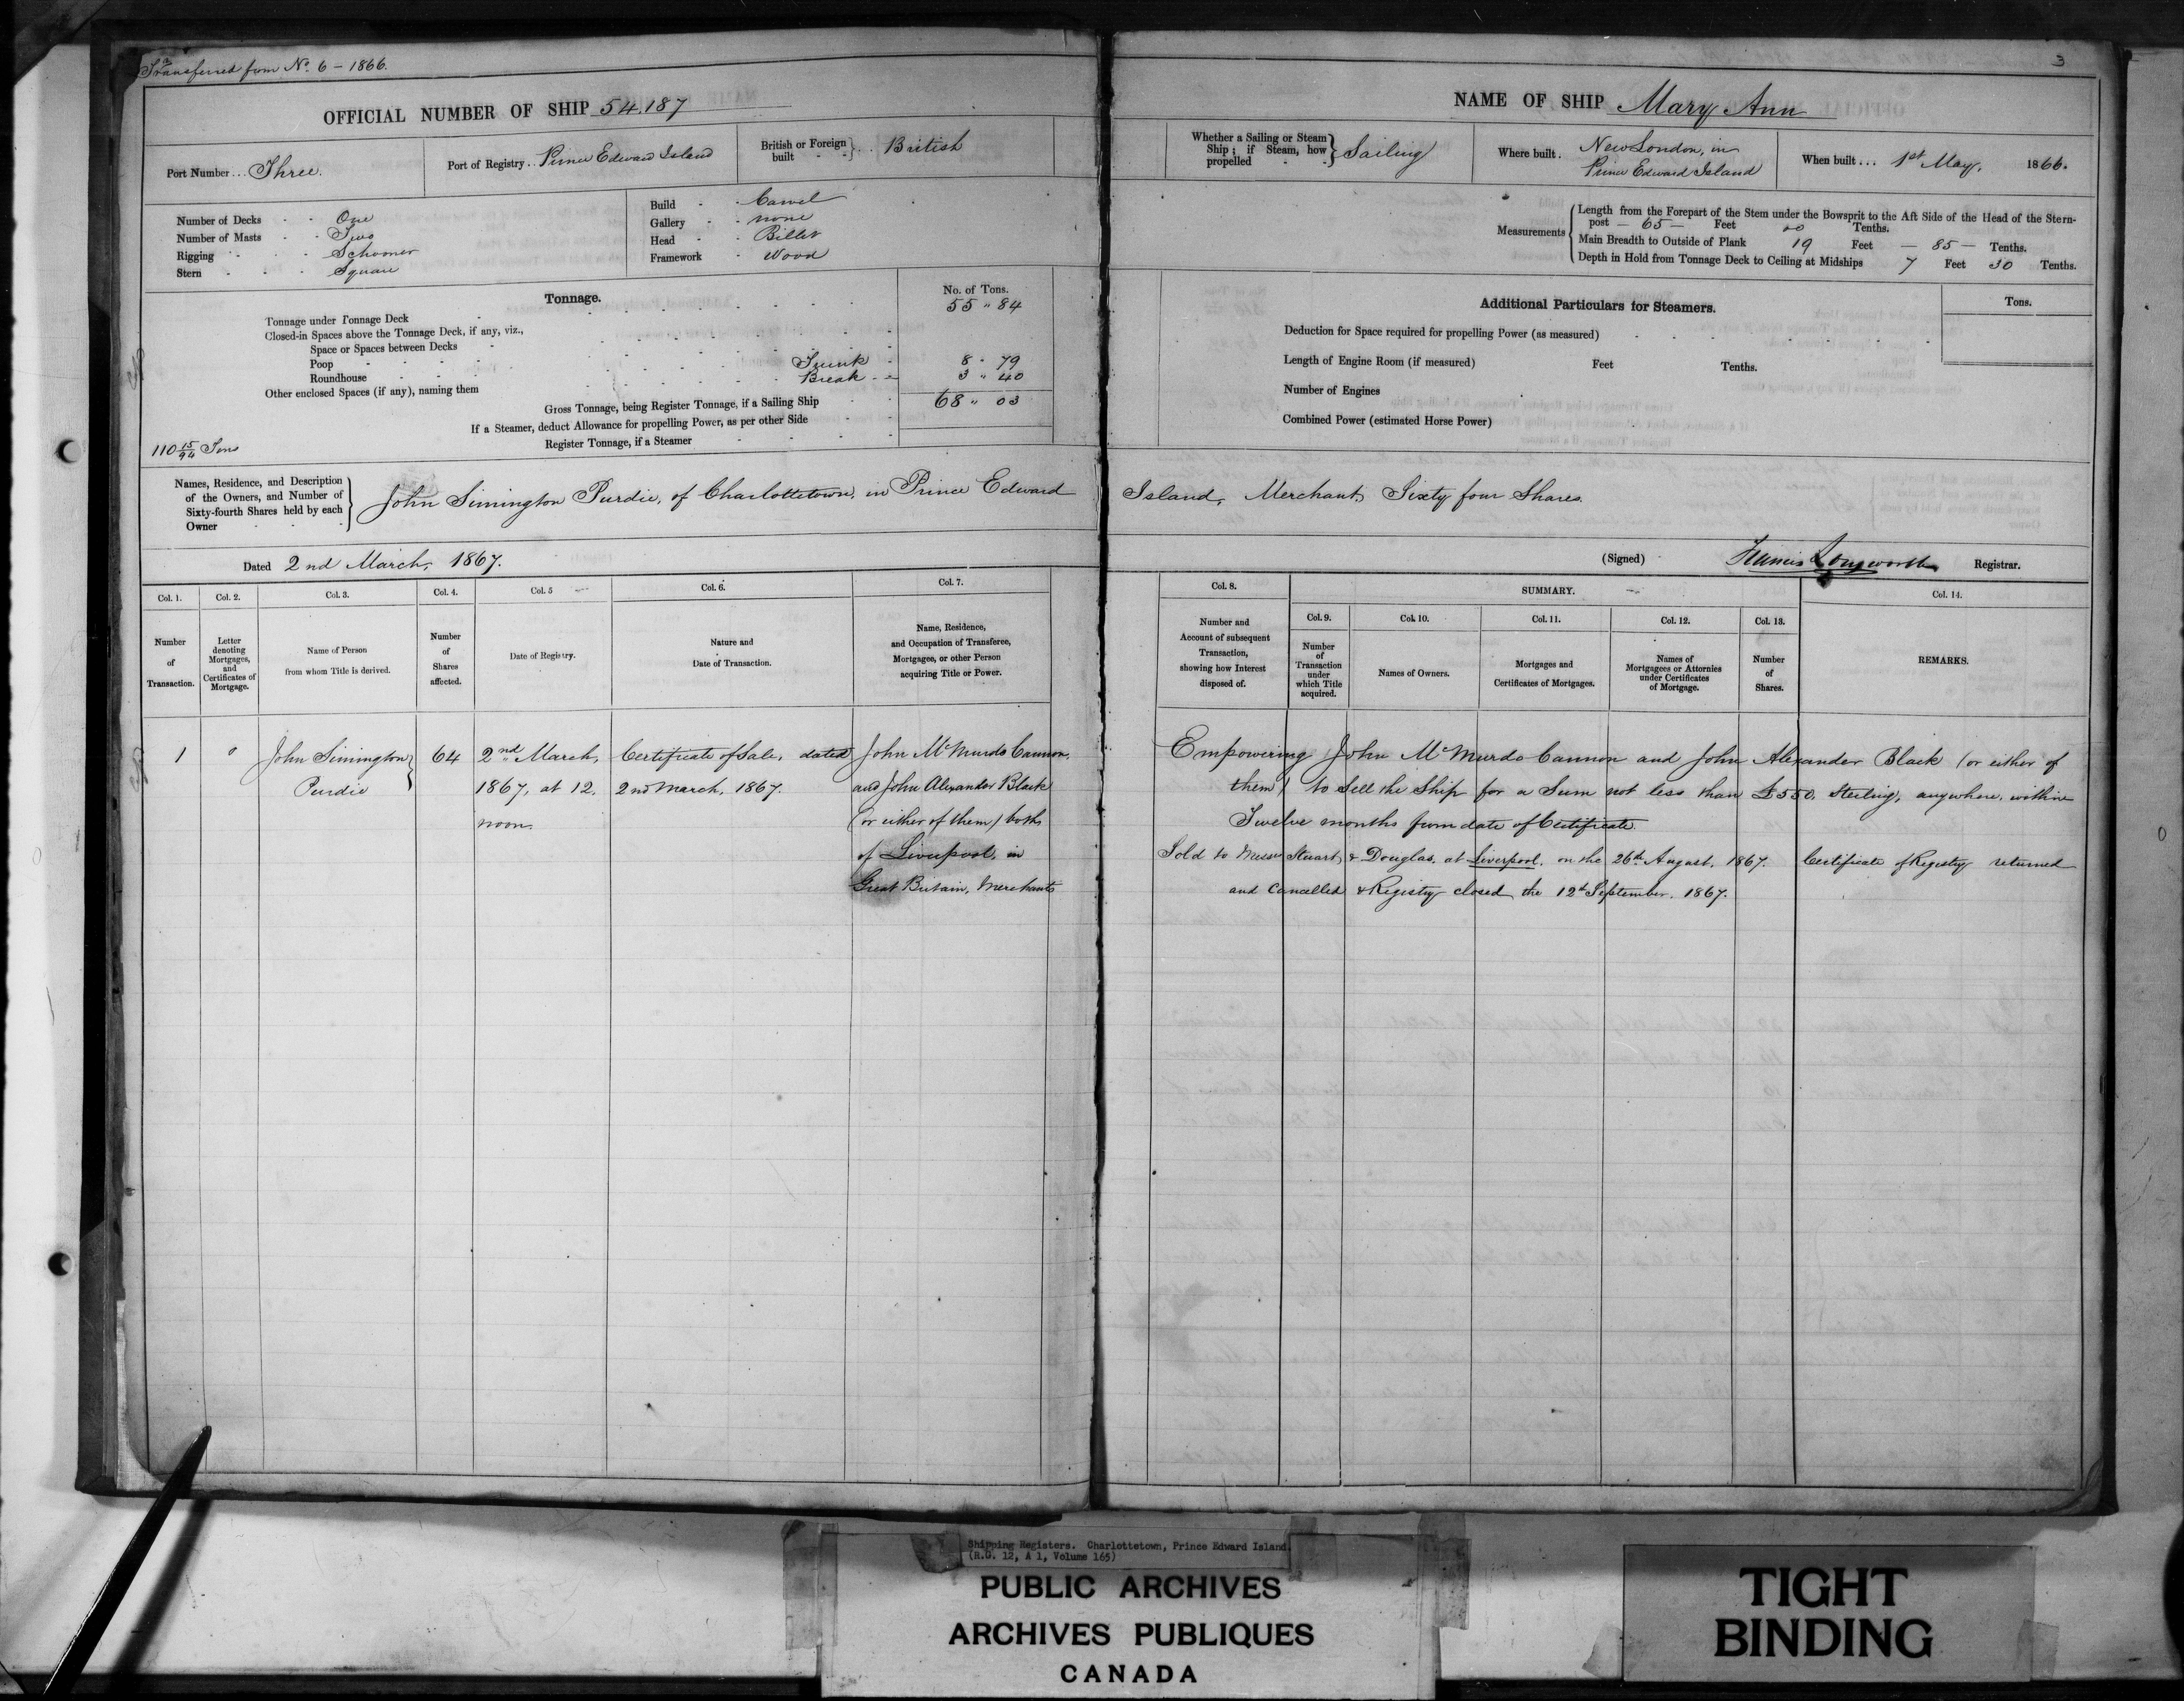 Transferred from No. 6 - 1866.
OFFICIAL NUMBER OF SHIP 54,187
Port Number ... Three.
Port of Registry .. Prince Edward Island
British or Foreign built } .. British
Number of Decks - - One
Number of Masts - - Two
Rigging - - - Schooner
Stern - - - Square
Build - - Carvel
Gallery - - none
Head - - Billet
Framework - Wood
Tonnage.
No. of Tons.
Tonnage under Tonnage Deck 55 " 84
Closed-in Spaces above the Tonnage Deck, if any, viz.,
Space or Spaces between Decks
Poop - - Trunk - 8 " 79
Roundhouse - - Break - - 3 " 40
Other enclosed Spaces (if any), naming them
Gross Tonnage, being Register Tonnage, if a Sailing Ship 68 " 03
If a Steamer, deduct Allowance for propelling Power, as per other Side
Register Tonnage, if a Steamer
110 15/94 Tons
Names, Residence, and Description
of the Owners, and Number of
Sixty-fourth Shares held by each
Owner
John Simington Purdie, of Charlottetown, in Prince Edward
Dated 2nd March, 1867.
Col. 1. Col. 2. Col. 3. Col. 4. Col. 5 Col. 6. Col. 7.
Number of Transaction.
Letter denoting Mortgages, and Certificates of Mortgage.
Name of Person from whom Title is derived.
Number of Shares affected.
Date of Registry.
Nature and Date of Transaction.
Name, Residence, and Occupation of Transferee, Mortgagee, or other Person acquiring Title or Power.
1 " John Simington } 64 2nd March, Certificate of Sale, dated John McMurdo Cannon,
Purdie 1867, at 12, 2nd March, 1867. and John Alexander Black
noon. (or either of them) both
of Liverpool, in
Great Britain, Merchants
3
NAME OF SHIP Mary Ann
Whether a Sailing or Steam Ship; if Steam, how propelled - - } Sailing
Where built . New London, in
Prince Edward Island
When built ... 1st May, 1866.
Measurements
Length from the Forepart of the Stem under the Bowsprit to the Aft Side of the Head of the Stern-
post — 65 — Feet 00 Tenths.
Main Breadth to Outside of Plank 19 Feet — 85 — Tenths.
Depth in Hold from Tonnage Deck to Ceiling at Midships 7 Feet 30 Tenths.
Additional Particulars for Steamers.
Tons.
Deduction for Space required for propelling Power (as measured)
Length of Engine Room (if measured) Feet Tenths.
Number of Engines
Combined Power (estimated Horse Power)
Island, Merchant, Sixty four Shares.
(Signed) Francis Longworth Registrar.
Col. 8. SUMMARY. Col. 14.
Col. 9. Col. 10. Col. 11. Col. 12. Col. 13.
Number and Account of subsequent Transaction, showing how Interest disposed of.
Number of Transaction under which Title acquired.
Names of Owners.
Mortgages and Certificates of Mortgages.
Names of Mortgagees or Attornies under Certificates of Mortgage.
Number of Shares.
REMARKS.
Empowering John McMurdo Cannon and John Alexander Black (or either of
them) to Sell the Ship for a Sum not less than £550, Sterling, anywhere, within
Twelve months from date of Certificate.
Sold to Messrs Stuart & Douglas, at Liverpool, on the 26th August, 1867. Certificate of Registry returned
and Cancelled & Registry closed the 12th September, 1867.
Shipping Registers. Charlottetown, Prince Edward Island.
(R.G. 12, A 1, Volume 165)
PUBLIC ARCHIVES
ARCHIVES PUBLIQUES
CANADA
TIGHT
BINDING